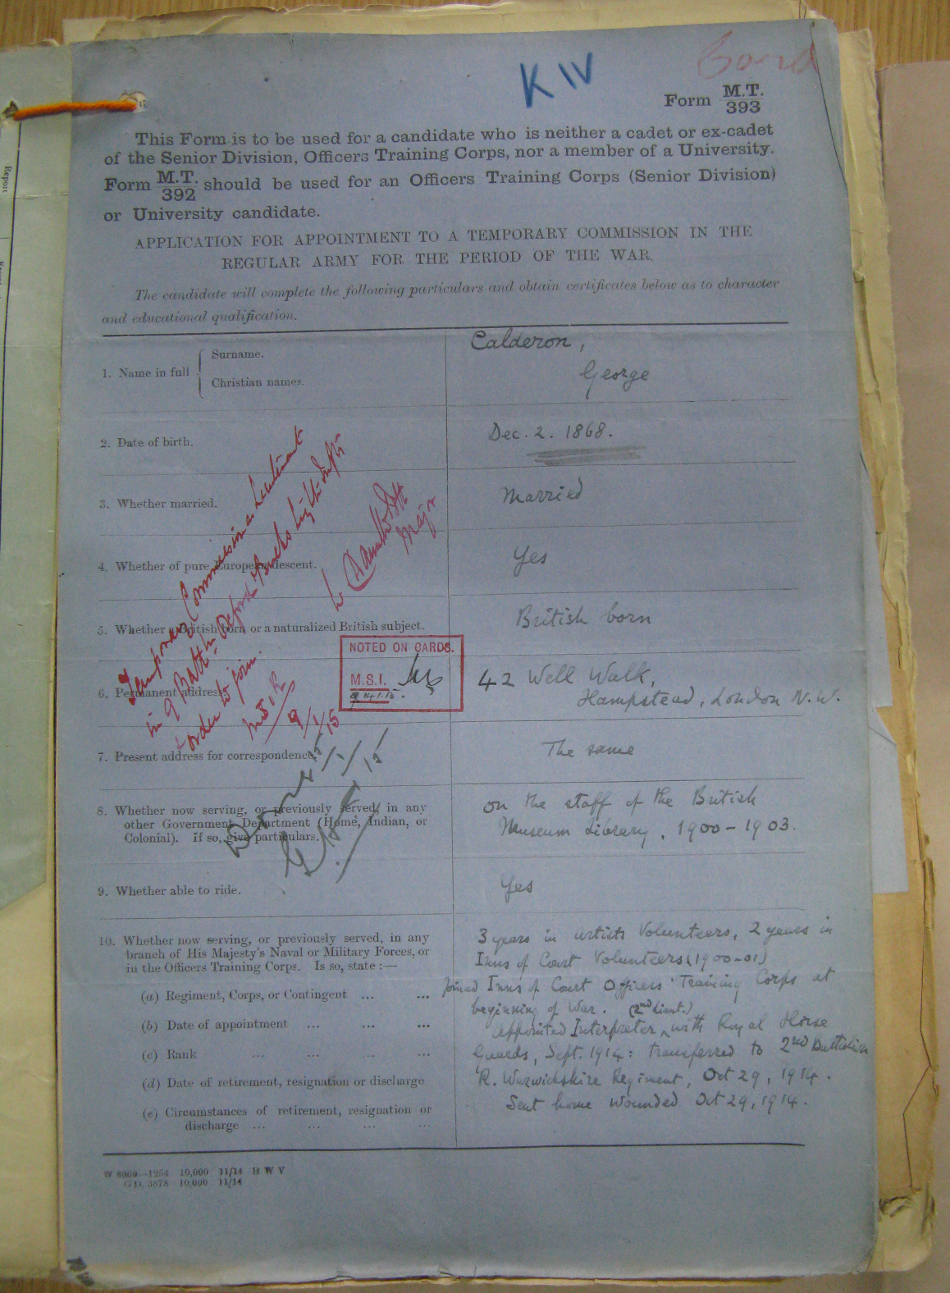 K IV
Card
Form M.T. 393
This Form is to be used for a candidate who is neither a cadet or ex-cadet
of the Senior Division, Officers Training Corps, nor a member of a University.
Form M.T. 392 should be used for an Officers Training Corps (Senior Division)
or University candidate.
APPLICATION FOR APPOINTMENT TO A TEMPORARY COMMISSION IN THE
REGULAR ARMY FOR THE PERIOD OF THE WAR.
The candidate will complete the following particulars and obtain certificates below as to character
and educational qualification.
1. Name in full { Surname. Calderon,
Christian names. George
2. Date of birth. Dec. 2. 1868.
3. Whether married. Married
4. Whether of pure European descent. Yes
5. Whether British born or a naturalized British subject. British born
6. Permanent address. 42 Well Walk,
Hampstead, London N.W.
7. Present address for correspondence. The same
8. Whether now serving, or previously served, in any
other Government Department (Home, Indian, or
Colonial). If so, give particulars.
on the staff of the British
Museum Library, 1900-1903.
9. Whether able to ride. Yes
10. Whether now serving, or previously served, in any
branch of His Majesty's Naval or Military Forces, or
in the Officers Training Corps. Is so, state :—
(a) Regiment, Corps, or Contingent ... ...
(b) Date of appointment ... ... ...
(c) Rank ... ... ... ...
(d) Date of retirement, resignation or discharge
(e) Circumstances of retirement, resignation or
discharge ... ... ... ...
3 years in Artists Volunteers, 2 years in
Inns of Court Volunteers (1900-01)
Joined Inns of Court Officers' Training Corps at
beginning of War.
(2nd Lieut.)
Appointed Interpreter with Royal Horse
Guards, Sept. 1914: transferred to 2nd Battalion
R. Warwickshire Regiment, Oct 29, 1914.
Sent home wounded Oct 29, 1914.
Temporary Commission as Lieutenant
in 9 Battn Oxford & Bucks Light Infty
order to join.
9/1/15
Major
NOTED ON CARDS.
M.S.I.
Report
W 8069—1264 10,000 11/14 H W V
3878 10,000 11/14